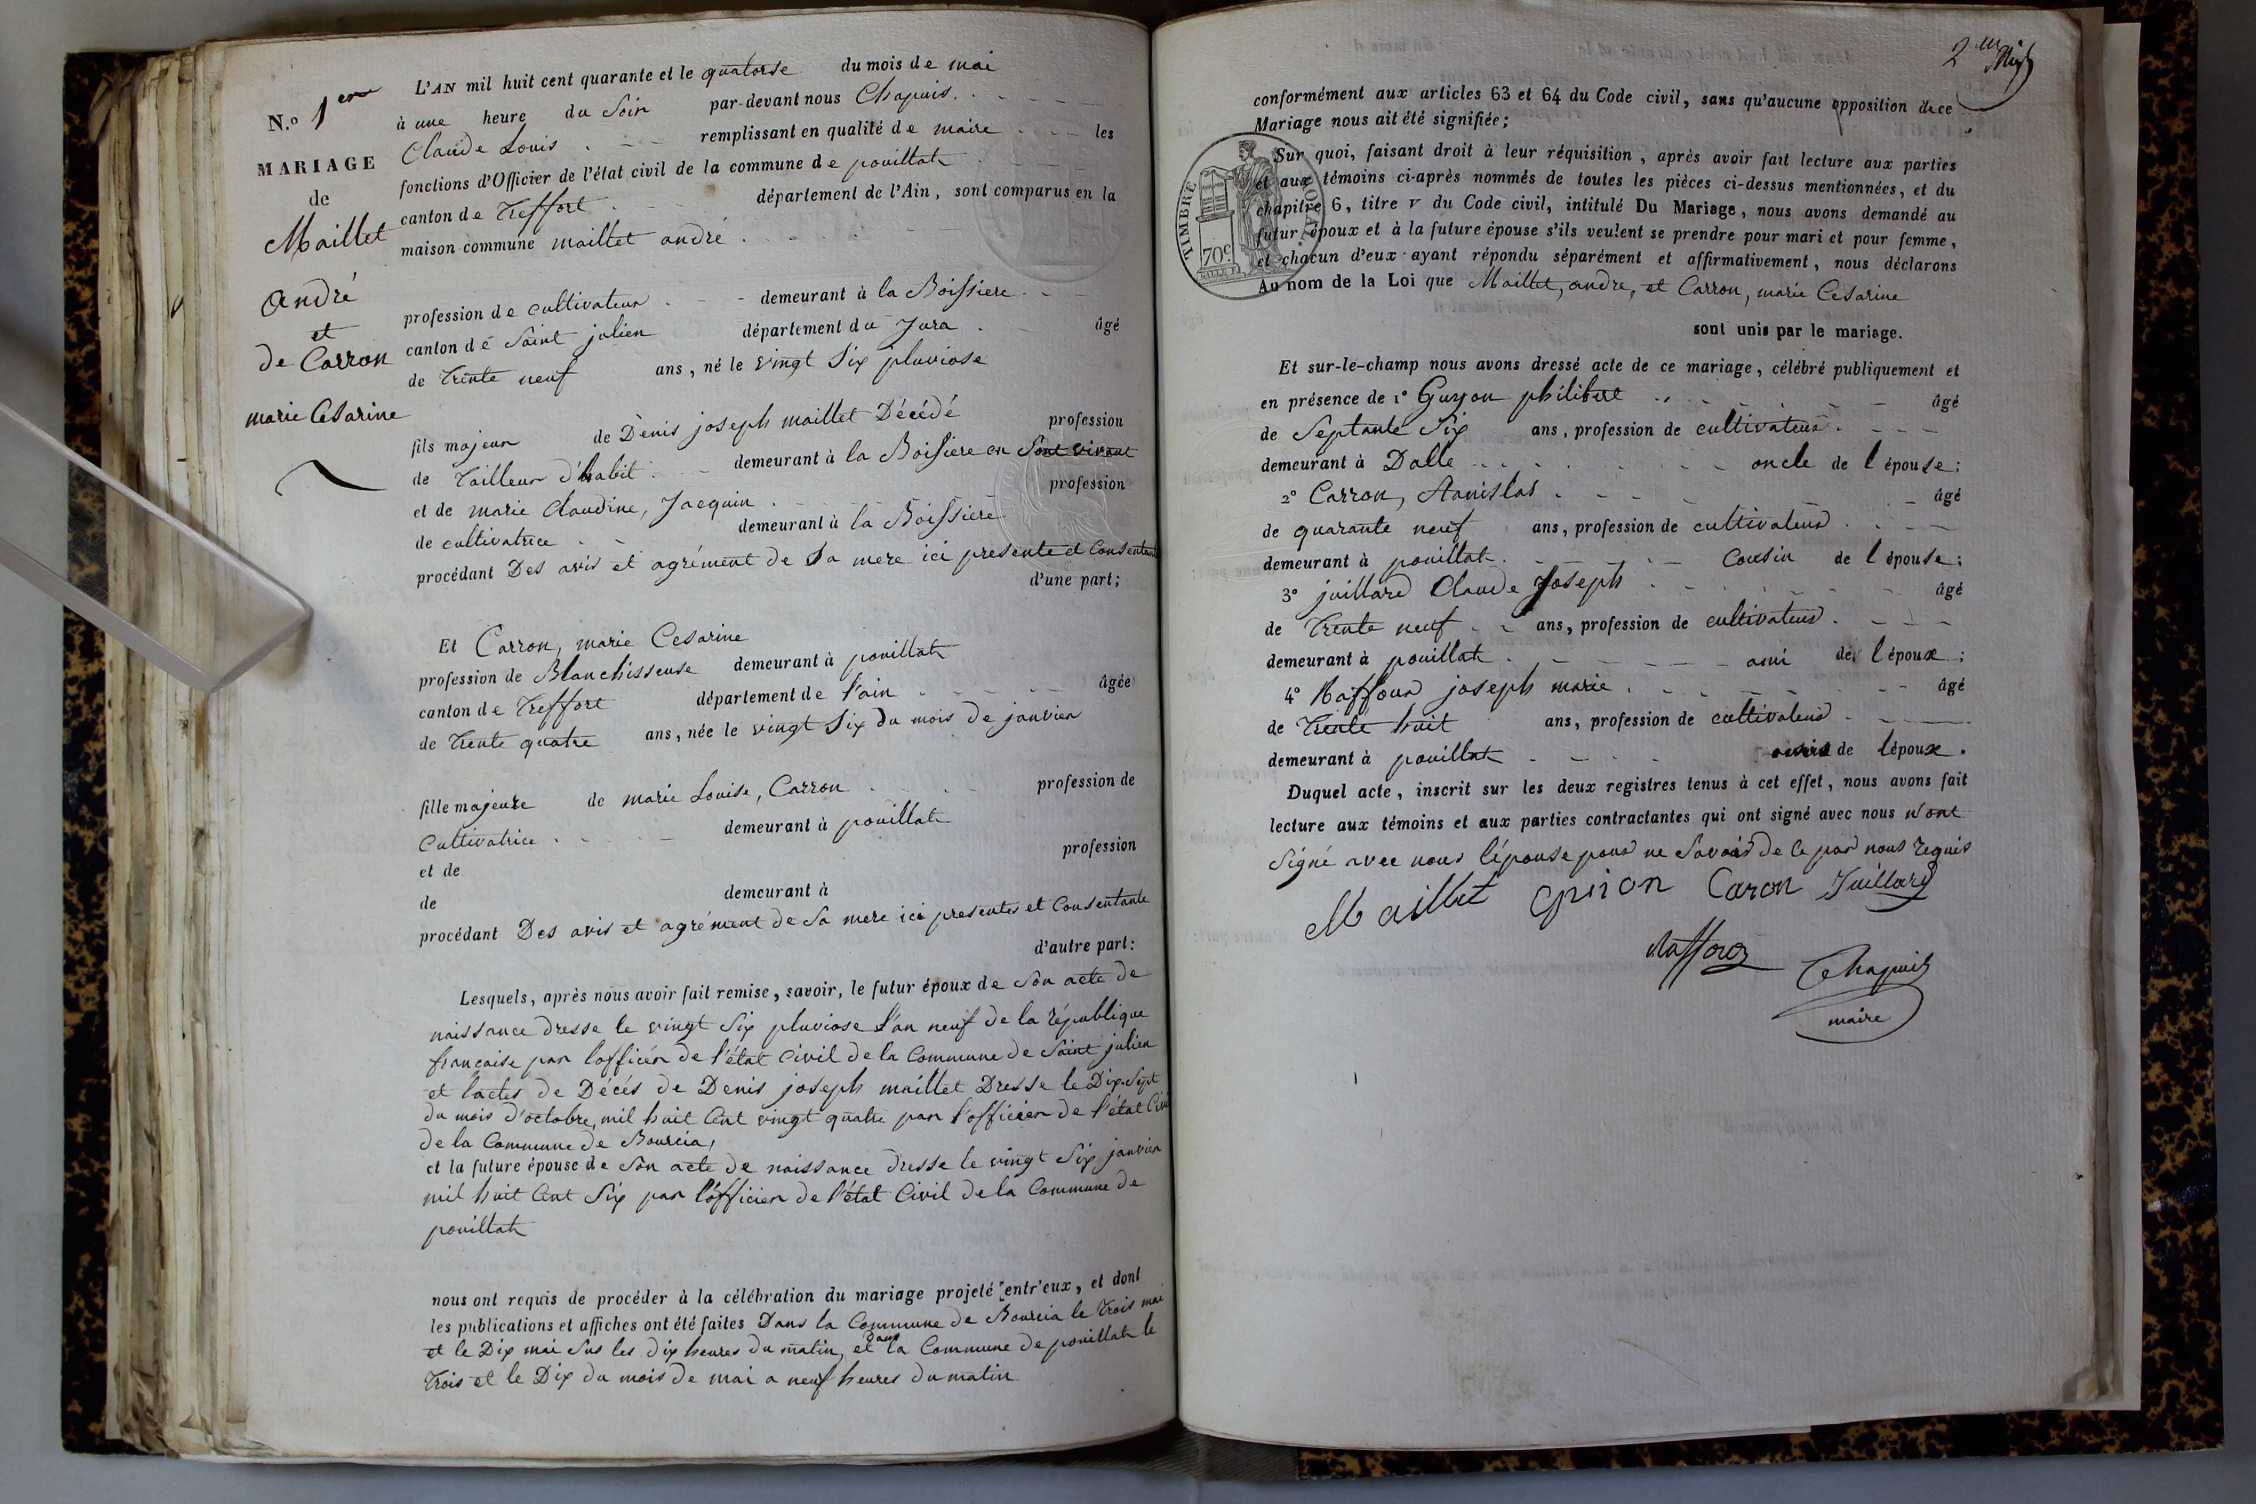 N.º 1er
MARIAGE
de
Maillet
André
et
de Carron
marie Cesarine
L'AN mil huit cent quarante et le quatorse du mois de mai
à une heure du Soir par-devant nous Chapuis.
Claude Louis remplissant en qualité de maire les
fonctions d'Officier de l'état civil de la commune de pouillat
canton de Treffort département de l'Ain, sont comparus en la
maison commune maillet andré
profession de cultivateur demeurant à la Boissiere
canton de Saint julien département du Jura âgé
de Trente neuf ans, né le vingt Six pluviose
fils majeur de Denis joseph maillet Décédé profession
de Tailleur d'habit demeurant à la Boisiere en Sont vivant
et de marie Claudine, Jacquin profession
de cultivatrice demeurant à la Boissiere
procédant Des avis et agrément de Sa mere ici presente et Consentante
d'une part;
Et Carron, marie Cesarine
profession de Blanchisseuse demeurant à pouillat
canton de Treffort département de l'ain âgée
de Trente quatre ans, née le vingt Six du mois de janvier
fille majeure de marie Louise, Carron profession de
Cultivatrice demeurant à pouillat
et de profession
de demeurant à
procédant Des avis et agrément de Sa mere ici presentes et Consentante
d'autre part:
Lesquels, après nous avoir fait remise, savoir, le futur époux de Son acte de
naissance dresse le vingt Six pluviose l'an neuf de la république
française par l'officér de l'état civil de la Commune de Saint julien
et l'actes de Décés de Denis joseph maillet Dresse le Dix Sept
du mois d'octobre, mil huit Cent vingt quatre par l'officier de l'état Civil
de la Commune de Bourcia,
et la future épouse de Son acte de naissance dresse le vingt Six janvier
mil huit Cent Six par l'officier de l'état Civil de la Commune de
pouillat
nous ont requis de procéder à la célébration du mariage projeté entr'eux, et dont
les publications et affiches ont été faites Dans la Commune de Bourcia le Trois mai
et le Dix mai Sus les dix heures du matin, et dans la Commune de pouillat le
Trois et le Dix du mois de mai a neuf heures du matin
2me
conformément aux articles 63 et 64 du Code civil, sans qu'aucune opposition de ce
Mariage nous ait été signifiée;
TIMBRE ROYAL
70c
Sur quoi, faisant droit à leur réquisition, après avoir fait lecture aux parties
et aux témoins ci-après nommés de toutes les pièces ci-dessus mentionnées, et du
chapitre 6, titre v du Code civil, intitulé Du Mariage, nous avons demandé au
futur époux et à la future épouse s'ils veulent se prendre pour mari et pour femme,
et chacun d'eux ayant répondu séparément et affirmativement, nous déclarons
Au nom de la Loi que Maillet, andre, et Carron, marie Cesarine
sont unis par le mariage.
Et sur-le-champ nous avons dressé acte de ce mariage, célébré publiquement et
en présence de 1º Guyon philibert âgé
de Septante Six ans, profession de cultivateur
demeurant à Dalle oncle de l'épouse;
2º Carron, Stanislas âgé
de quarante neuf ans, profession de cultivateur
demeurant à pouillat Cousin de l'épouse;
3º juillard Claude Joseph âgé
de Trente neuf ans, profession de cultivateur
demeurant à pouillat ami de l'époux;
4º Raffour joseph marie âgé
de Trente huit ans, profession de cultivateur
demeurant à pouillat de l'époux.
Duquel acte, inscrit sur les deux registres tenus à cet effet, nous avons fait
lecture aux témoins et aux parties contractantes qui ont signé avec nous N'ont
Signé avec nous l'épouse pour ne Savoir de ce par nous requis
Maillet Caron Juillard
Raffour Chapuis
maire